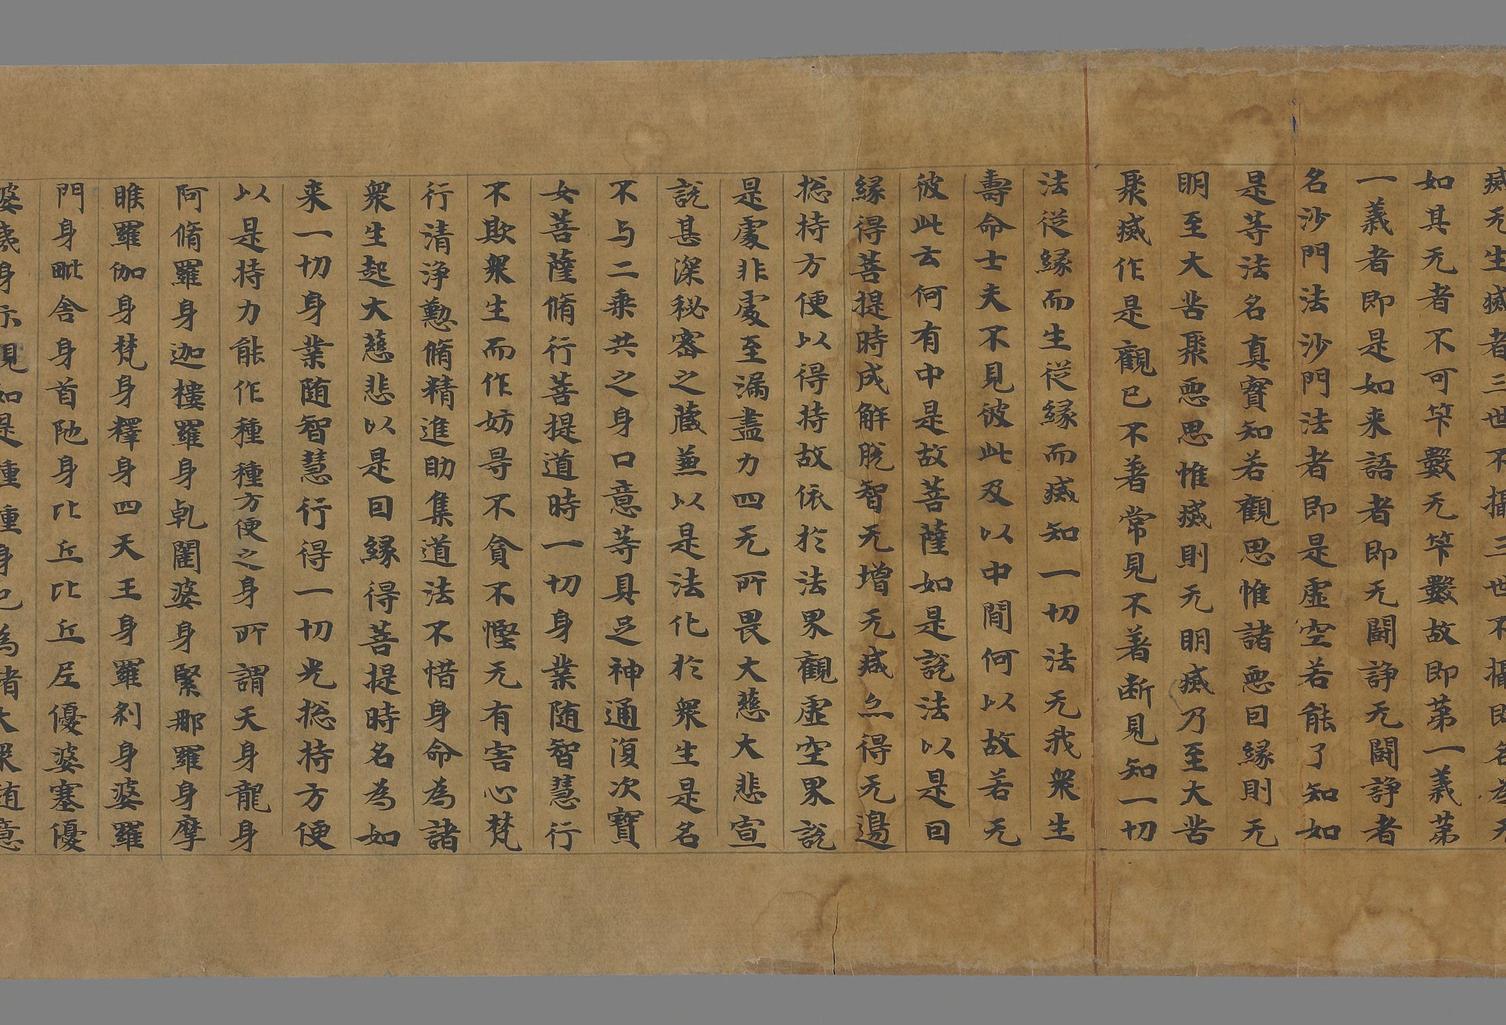 滅无生滅者三世不攝三世不攝即名為无
如其无者不可筭數无筭數故即第一義第
一義者即是如来語者即无闘諍无闘諍者
名沙門法沙門法者即是虛空若能了知如
是等法名真實知若觀思惟諸惡曰緣則无
明至大苦聚惡思惟滅則无明滅乃至大苦
聚滅作是觀已不著常見不著断見知一切
法從緣而生從緣而滅知一切法无我衆生
壽命士夫不見彼此及以中間何以故若无
彼此云何有中是故菩薩如是說法以是曰
緣得菩提時成解脫智无增无減亦得无邊
捴持方便以得持故依於法界觀虛空界說
是處非處至漏盡力四无所畏大慈大悲宣
說甚深秘密之藏並以是法化於衆生是名
不与二乘共之身口意等具足神通復次寶
女菩薩脩行菩提道時一切身業隨智慧行
不欺衆生而作妨㝵不貪不慳无有害心梵
行清淨懃脩精進助集道法不惜身命為諸
衆生起大慈悲以是曰緣得菩提時名為如
来一切身業随智慧行得一切光捴持方便
以是持力能作種種方便之身所謂天身龍身
阿脩羅身迦樓羅身乹闥婆身緊那羅身摩
睢羅伽身梵身釋身四天王身羅刹身婆羅
門身毗舍身首陁身比丘比丘尼優婆塞優
婆夷身示現如是種種身已為諸大衆随意